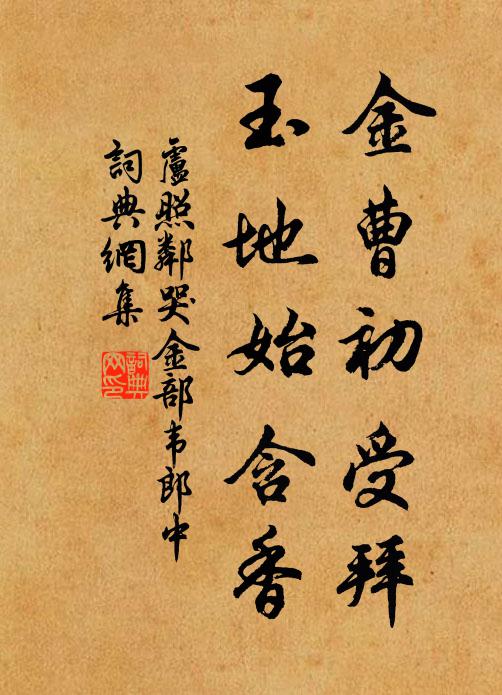 金曹初受拜
玉地始含香
盧照鄰哭金部韦郎中
詞典網集
詞典网印